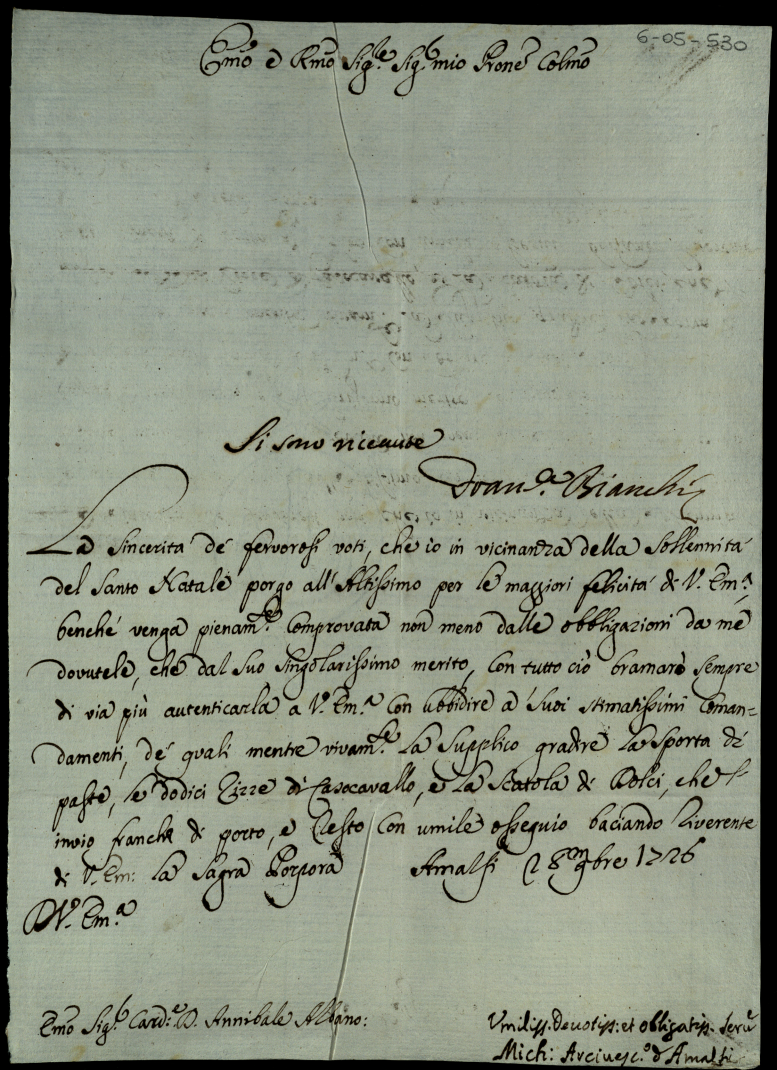 6-05-530
Emo e Rmo Sigre Sigr mio Prone Colmo
Si sono ricevute
Bianchi
La sincerità de' fervorosi voti, che io in vicinanza della Sollennità
del Santo Natale porgo all'Altissimo per le maggiori felicità di V. Ema,
benché venga pienamte comprovata non meno dalle obbligazioni da me
dovutele, che dal suo singolarissimo merito, con tutto ciò bramarò sempre
di via più autenticarla a V. Ema con ubbidire a' suoi stimatissimi Coman=
damenti, de' quali mentre vivamte la supplico gradire la sporta di
paste, le dodici Zizze di Casocavallo, e la Scatola di Dolci, che l'
invio franche di porto, e resto con umile osseguio baciando riverente
di V. Em: la Sagra Porpora Amalfi 1726
D V. Ema
Emo Sigr Cardle D. Annibale Albano:
Vmiliss. Devotiss: et obligatiss. Seru
Mich: Arciuesc:o d'Amalfi